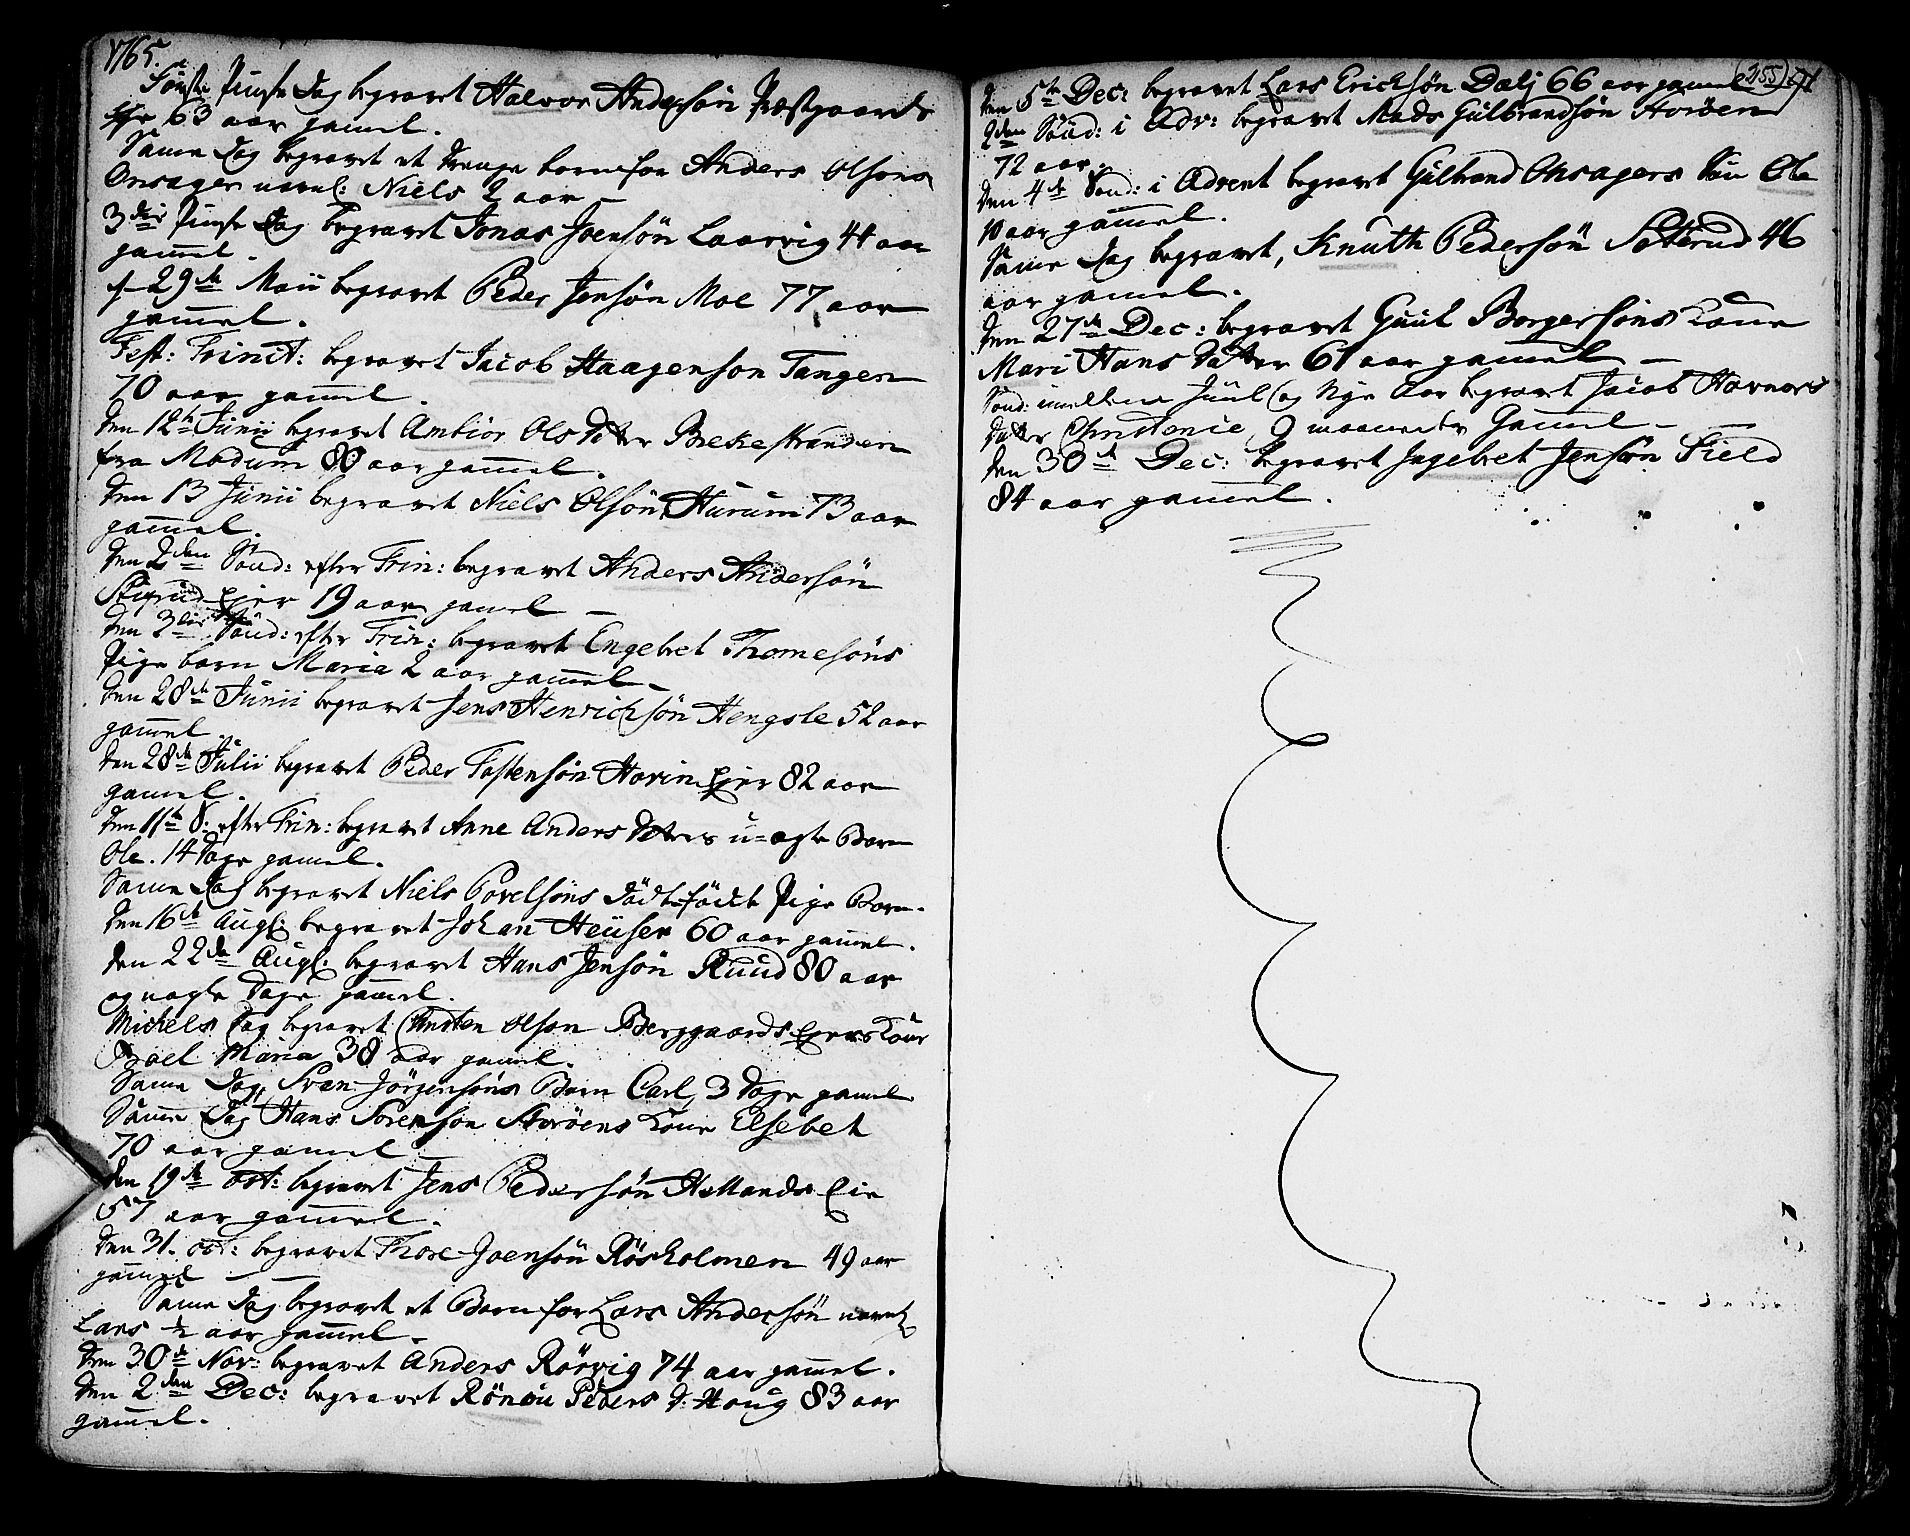 1765.
Første Pinse Dag begravet Halvor Andersøn Præstgaards
63 aar gam̅el.
Sam̅e Dag begravet et Drenge barn for Anders Olsøns
Onsager navnl: Niels 2 aar –
3die Pinse Dag begravet Jonas Joensøn Laarvig 44 aar
gam̅el.
d. 29de Maii begravet Peder Jensøn Moe 77 aar
gam̅el.
Fest: Trinit: begravet Jacob Haagenson Tangen
70 aar gam̅el.
Den 12te Junii begravet Ambior Ols Datter Brekestranden
fra Modum 80 aar gam̅el.
Den 13 Junii begravet Niels Olsøn Hurum 73 aar
gam̅el.
Den 2den Sønd: efter Trin: begravet Anders Andersøn
Stigrud Eier 19 aar gam̅el –
Den 3die Sønd: efter Trin: begravet Engebret Thomesøns
Pige barn Maria 2 aar gam̅el –
Den 28de Junii begravet Jens Henrichsøn Hengsle 52 aar
gam̅el.
Den 28de Julii begravet Peder Tostensøn Hovin Eier 82 aar
gam̅el.
Den 11te S: efter Trin: begravet Anne Anders Datters u-ægte Barn
Ole. 14 Dage gam̅el.
Sam̅e Dag begravet Niels Povelsøns Dødfødt Pige Barn.
Den 16de Augl: begravet Johan Heuser 60 aar gam̅el.
Den 22de Augl: begravet Hans Jensøn Ruud 80 aar
og nogle Dage gam̅el.
Mickels Dag begravet Christen Olson Berggaards Eiers Kone
Boel Maria 38 aar gam̅el.
Sam̅e Dag Sven Jörgensøns Barn Carl, 3 Dage gam̅el
Sam̅e Dag Hans Sorenson Storöens Kone Elsebet
70 aar gam̅el –
Den 19de Oct: begravet Jens Pedersøn Hellands Eie
57 aar gam̅el.
Den 31. Oct: begravet Thore Joensøn Røskolmen 49 aar
gam̅el –
Sam̅e Dag begravet et Barn for Lars Andersøn navnl:
Lars ½ aar gam̅el.
Den 30de Nov: begravet Anders Rörvig 74 aar gam̅el.
Den 2den Dec: begravet Rönou Peders D: Houg 83 aar
gam̅el.
255
Den 5te Dec: begravet Lars Ericksøn Dælj 66 aar gam̅el
2den Sønd: i Adv: begravet Mads Gulbrandsøn Storöen
72 aar.
Den 4de Sønd: i Advent begravet Gulbrand Onsagers Søn Ole
10 aar gam̅el.
Sam̅e Dag begravet, Knuth Pedersøn Sætterud 46
aar gam̅el.
Den 27de Dec: begravet Guul Borgersøns Kone
Mari Hans Datter 61 aar gam̅el –
Sønd: imellem Juul og Nye Aar begravet Jacob Havnors
Datter Christense, 9 maaneder Gam̅el –
Den 30de Dec: begravet Ingebret Jensøn Field
84 aar gam̅el.